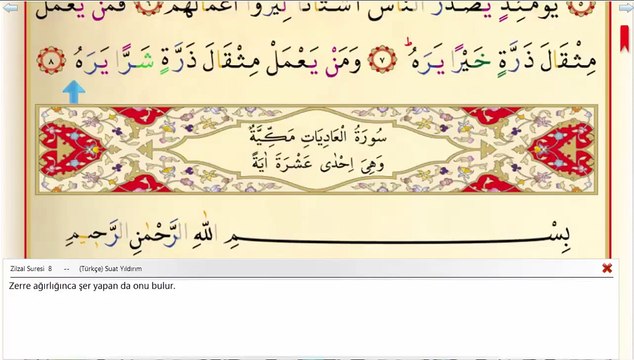 يَوْمَئِذٍ يَصْدُرُ النَّاسُ اَشْتَاتًا لِيُرَوْا اَعْمَالَهُمْ ﴿٦﴾ فَمَنْ يَعْمَلْ
مِثْقَالَ ذَرَّةٍ خَيْرًا يَرَهُ ﴿٧﴾ وَمَنْ يَعْمَلْ مِثْقَالَ ذَرَّةٍ شَرًّا يَرَهُ ﴿٨﴾
سُورَةُ الْعَادِيَاتِ مَكِّيَّةٌ
وَهِىَ اِحْدٰى عَشْرَةَ اٰيَةً
بِسْمِ اللّٰهِ الرَّحْمٰنِ الرَّحِيمِ
Zilzal Suresi 8 -- (Türkçe) Suat Yıldırım
Zerre ağırlığınca şer yapan da onu bulur.